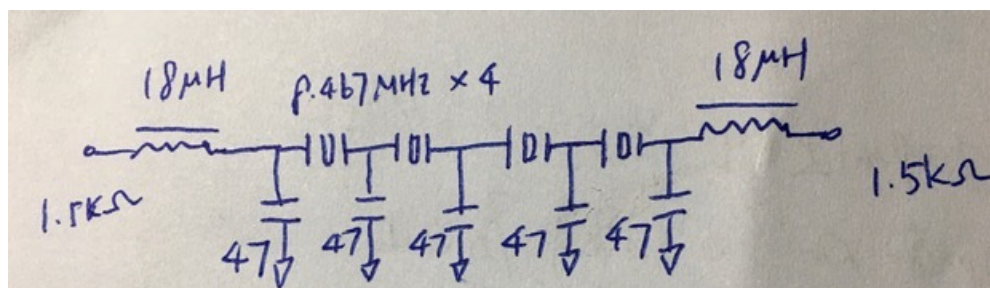 18μH
8.467MHz × 4
18μH
1.5kΩ
1.5kΩ
47 47 47 47 47